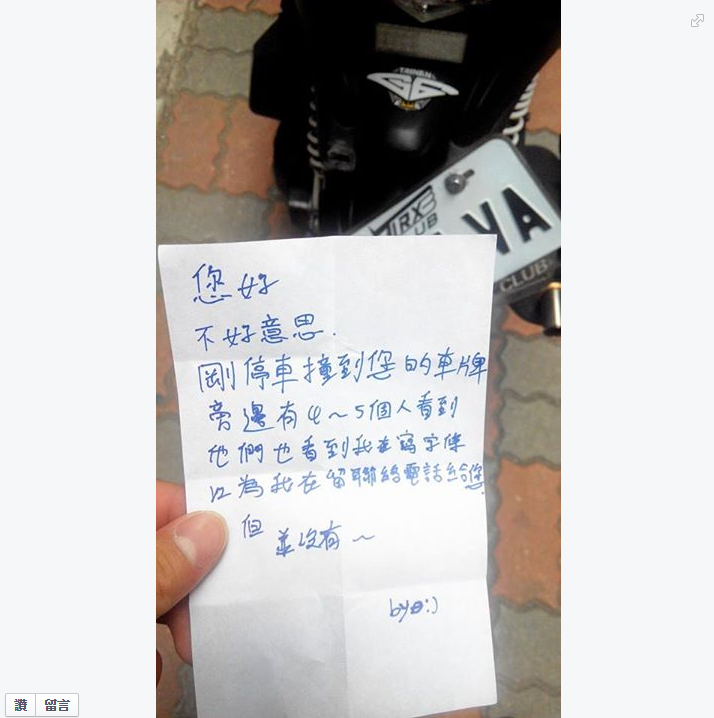 TAINAN
TIRX3
CLUB
VA
CLUB
您好
不好意思.
剛停車撞到您的車牌
旁邊有4~5個人看到
他們也看到我在寫字條
以為我在留聯絡電話給您.
但並沒有~
by :)
讚 留言